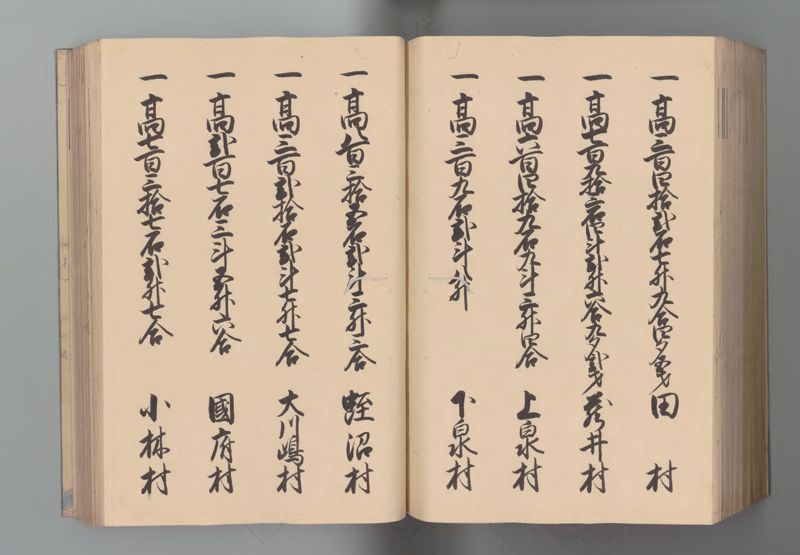 一高三百四拾弐石七升九合四夕五才 田村
一高七百九拾三石四斗弐升六合九夕弐才 井村
一高六百四拾九石九斗三升四合 上泉村
一高三百九石弐斗升 下泉村
一高百三拾五石弐斗三升六合 蛭沼村
一高三百弐拾石弐斗七升七合 大川嶋村
一高弐百七石三斗五升六合 國府村
一高七百三拾七石弐升七合 小林村